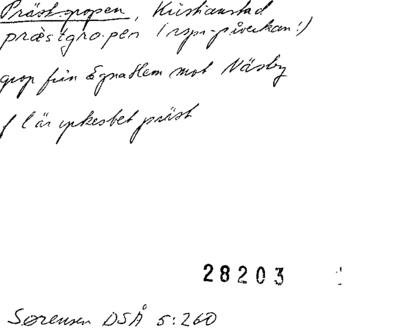 Prästgropen, Kristianstad
præstgro·pen (rspr-påverkan!)
grop från Egnahem mot Näsby
f l är yrkesbet präst
28203
Sørensen DSÅ 5:260